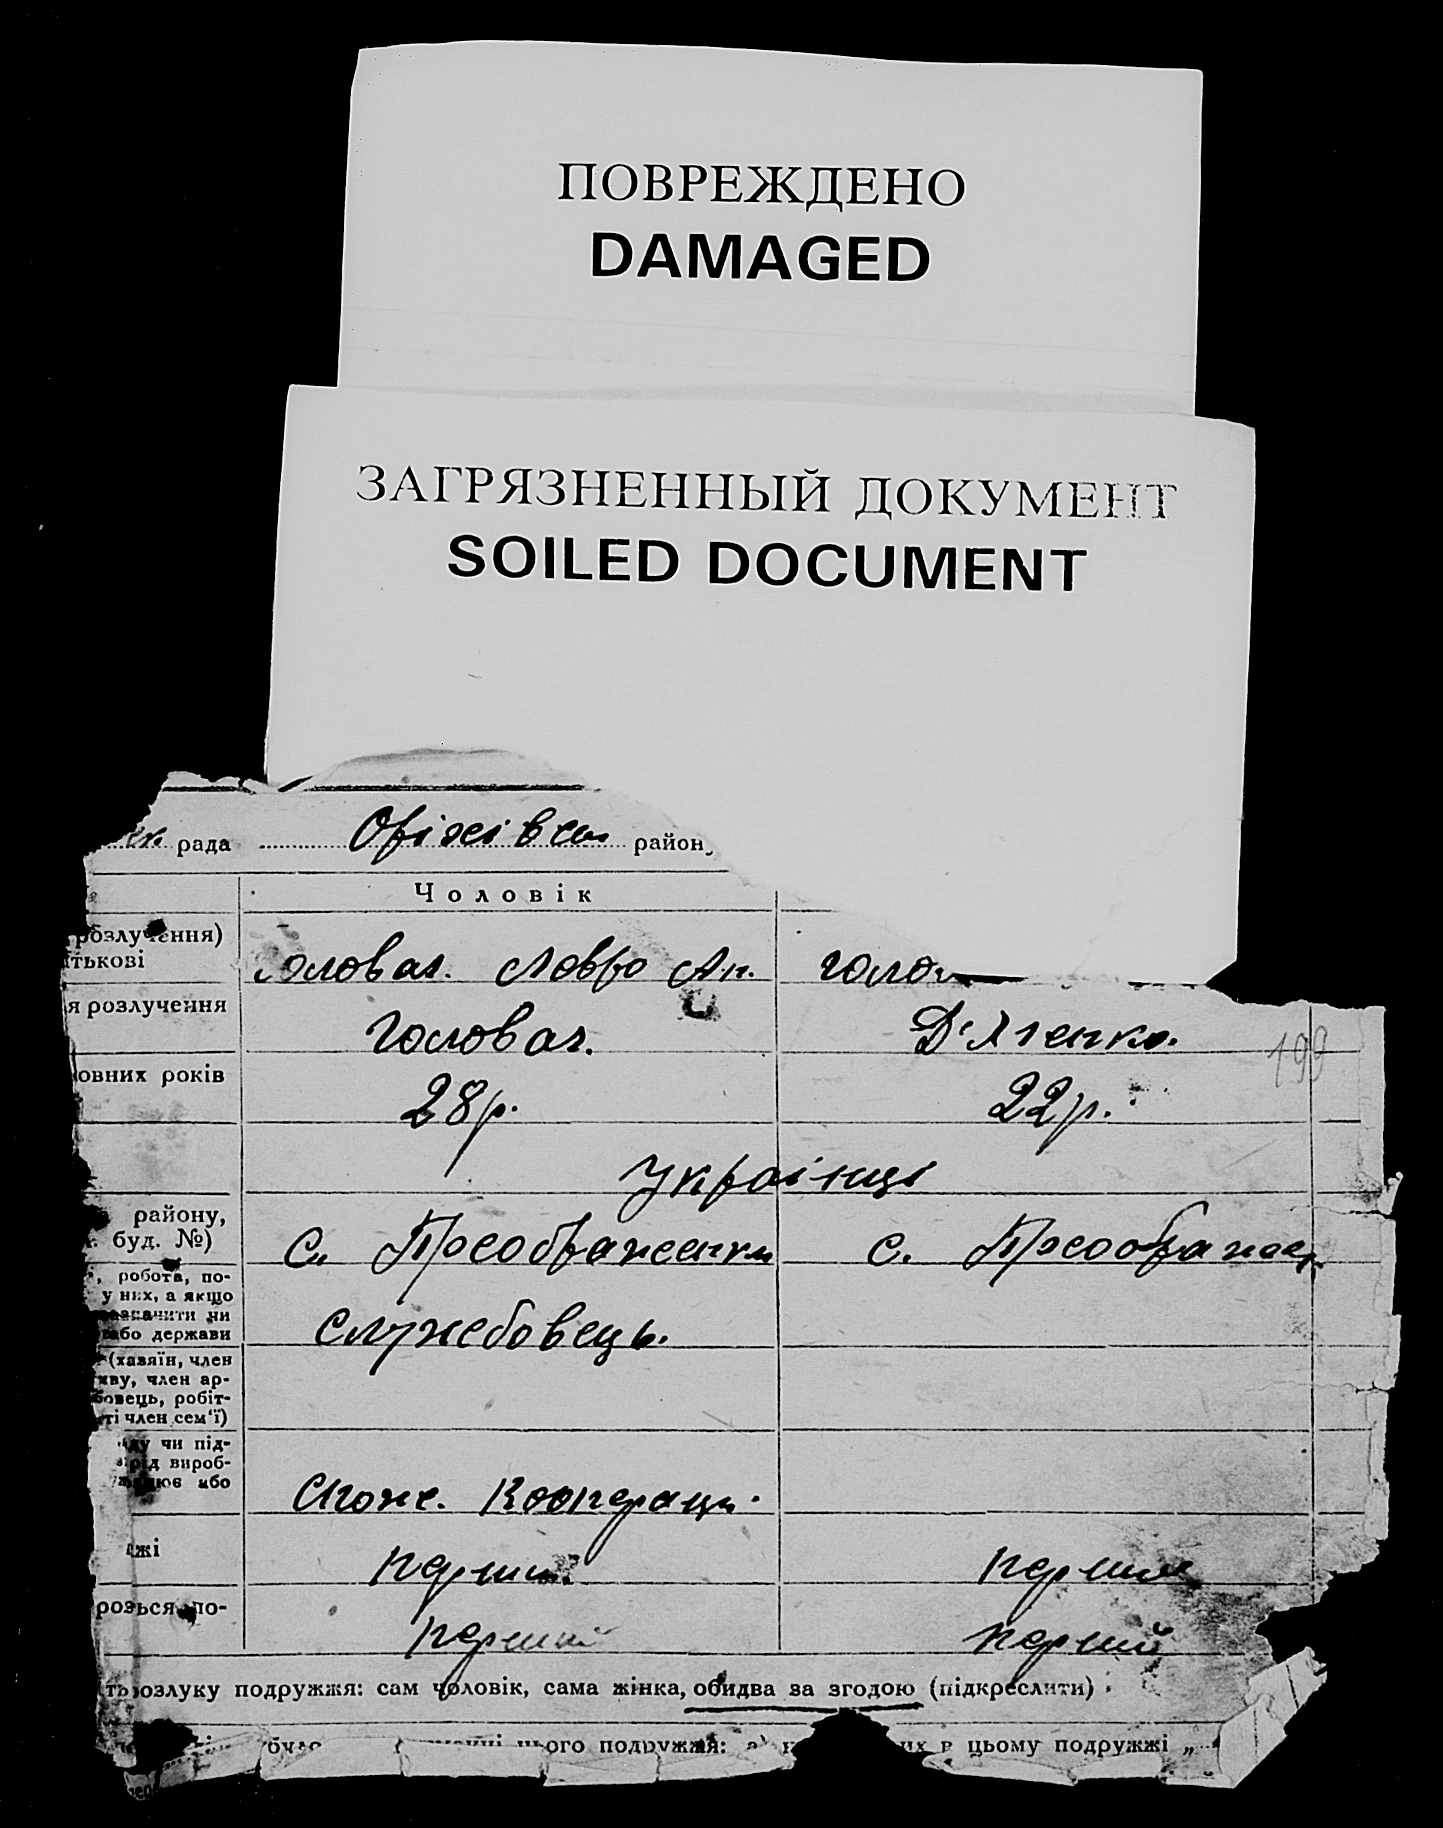 ПОВРЕЖДЕНО
DAMAGED
ЗАГРЯЗНЕННЫЙ ДОКУМЕНТ
SOILED DOCUMENT
рада Оріхівськ район
Чоловік
розлучення)
тькові
Головач. Лавро Ан. Голо
я розлучення
Головач. Д'Яченко.
овних років
28 р. 22 р.
Українці
району,
буд. №)
с. Преображенки с. Преображен
, робота, по-
у них, а якщо
зазначити чи
або держави
Службовець.
(хазяїн, член
иву, член ар-
бовець, робіт-
ті член сем'ї)
ду чи під-
рід вироб-
ює або
Спож. Кооперації
жі
перший перший
розься по-
перший перший
розлуку подружжя: сам чоловік, сама жінка, обидва за згодою (підкреслити)
цього подружжя: а) их в цьому подружжі „